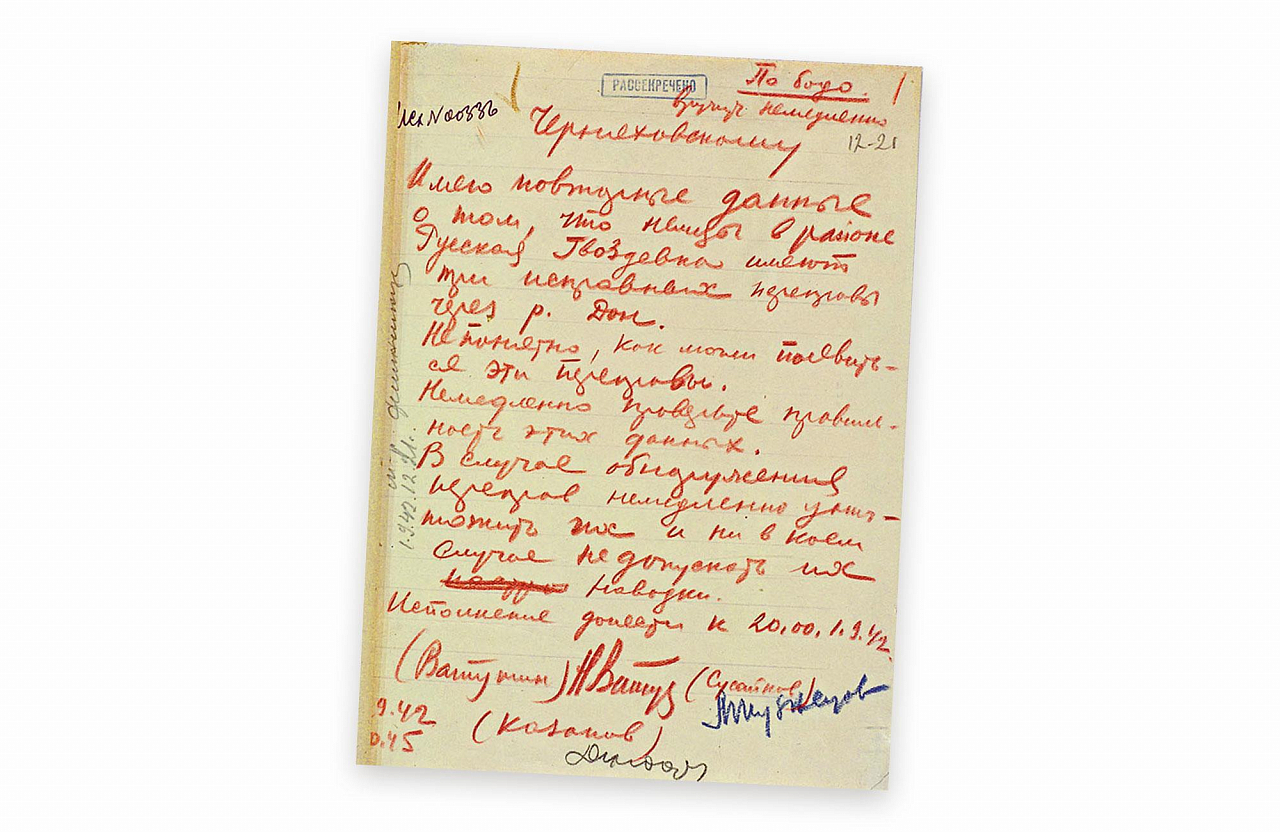 РАССЕКРЕЧЕНО
По бодо.
вручить немедленно
Исх N00336
12-21
Черняховскому
Имею повторные данные
о том, что немцы в районе
Русская Гвоздевка имеют
три исправных переправы
через р. Дон.
Не понятно, как могли появить-
ся эти переправы.
Немедленно проверьте правиль-
ность этих данных.
В случае обнаружения
переправ немедленно унич-
тожить их и ни в коем
случае не допускать их
наводки.
Исполнение донести к 20.00. 1.9.42.
(Ватутин) (Сусайков)
9.42
0.45
(Казаков)
1.9.42. 12.21.